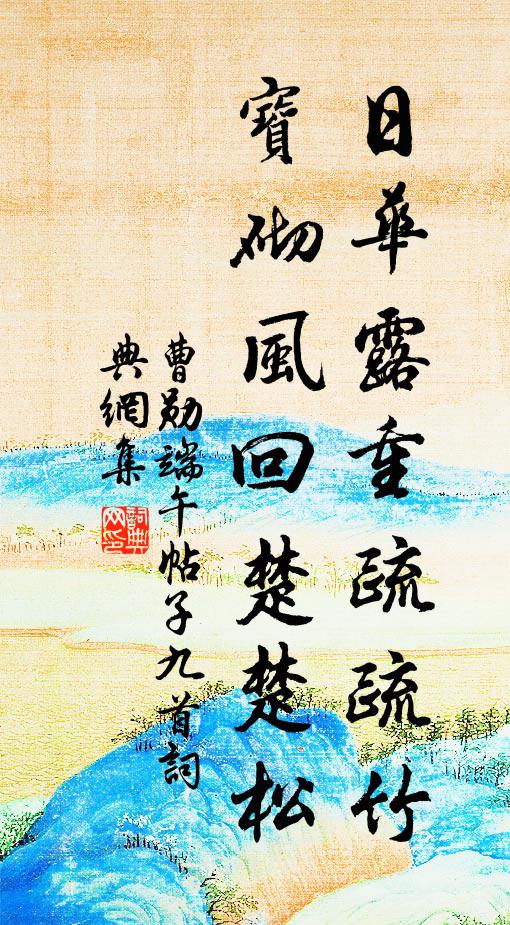 日華露重疏疏竹
寶砌風回楚楚松
曹勛端午帖子九首詞
典網集
詞典网印